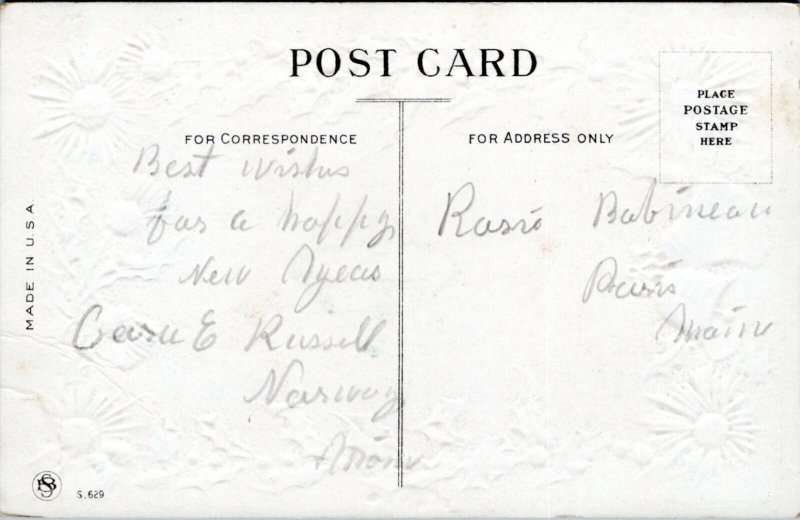 POST CARD
FOR CORRESPONDENCE
Best wishes
for a happy
New Years
E Russell
Norway
Maine
FOR ADDRESS ONLY
Rosie Babineau
Paris
Maine
PLACE
POSTAGE
STAMP
HERE
MADE IN U.S.A
S.629